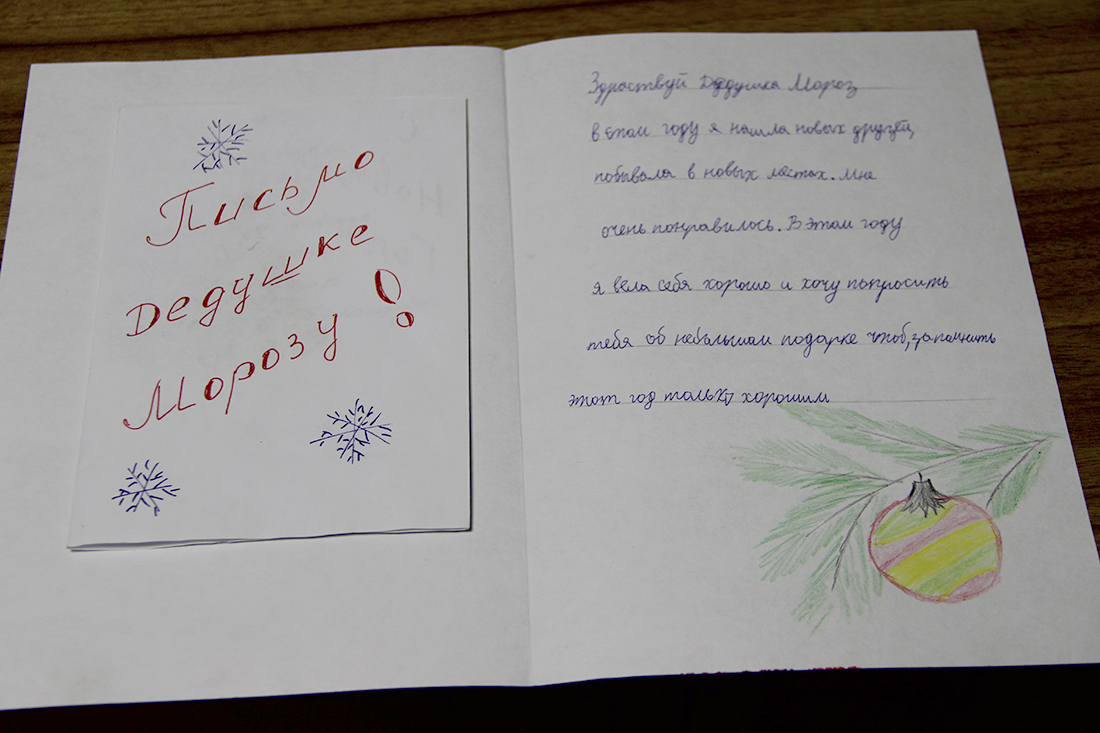 Письмо
дедушке
Морозу!
Здраствуй Дедушка Мороз
в этом году я нашла новых друзей,
побывала в новых местах. Мне
очень понравилось. В этом году
я вела себя хорошо и хочу попросить
тебя об небольшом подарке чтоб, запомнить
этот год только хорошим